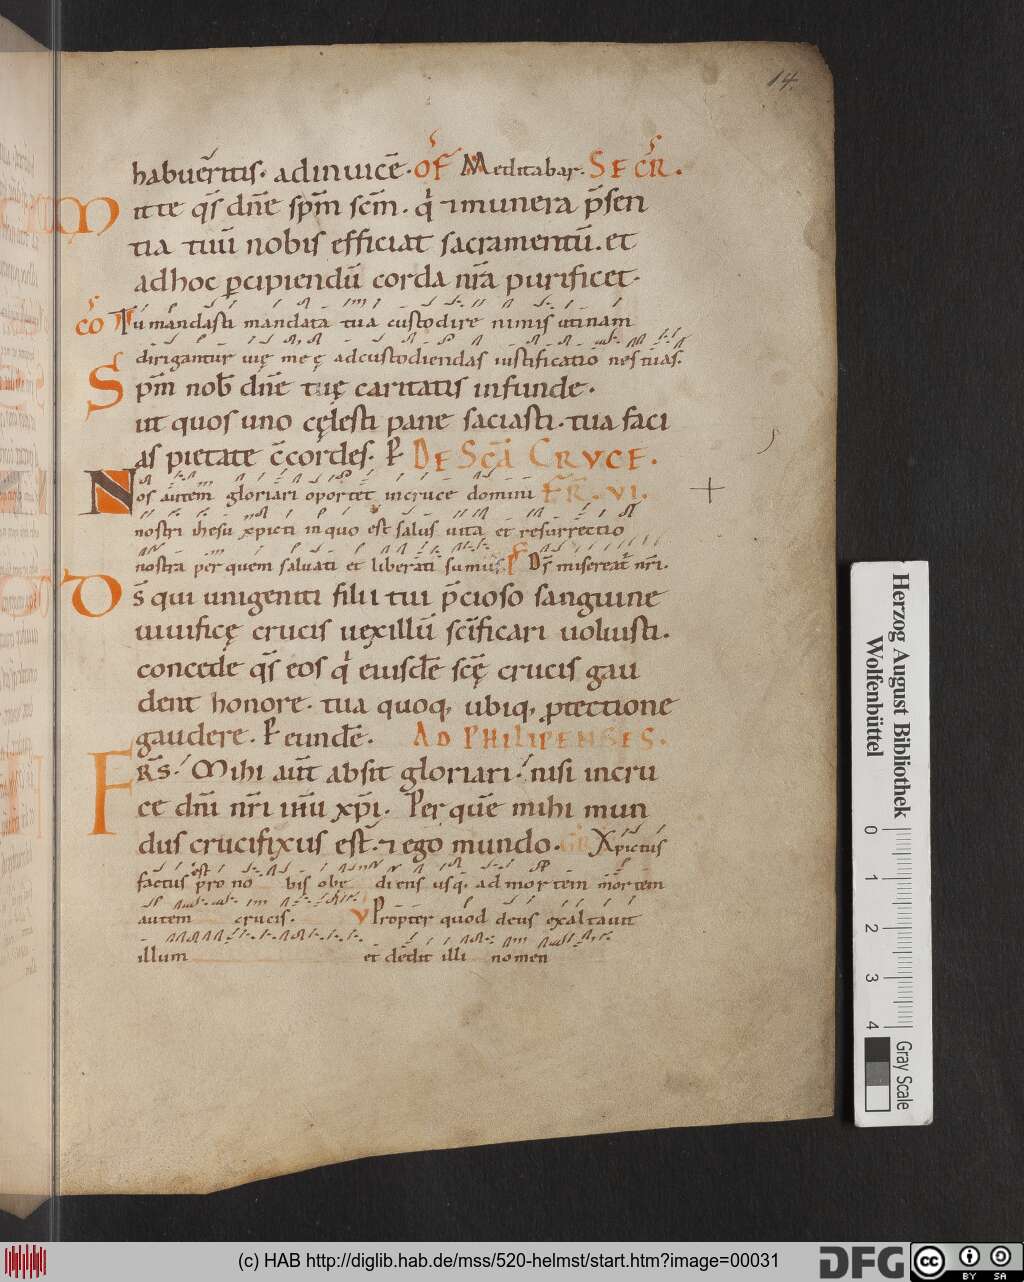 14.
habuer̄itis. adinuicē. Of̄ Meditabar. SECR̄.
Mitte qs̄ dn̄e sp̄m sc̄m. q' & munera p̄sen
tia tuū nobis efficiat sacramentū. et
adhoc ꝑcipiendū corda nr̄a purificet.
Cō Tu mandasti mandata tua custodire nimis utinam
dirigantur uię meę adcustodiendas iustificationes tuas.
Sp̄m nob̄ dn̄e tuę caritatis infunde.
ut quos uno cęlesti pane saciasti. tua faci
as pietate c̄cordes. P̲ DE SC̄A CRVCE.
Nos autem gloriari oportet incruce domini FR̄. VI.
nostri ihesu xpicti inquo est salus uita et resurrectio
nostra perquem saluati et liberati sumus. P̄ Ds̄ misereat̄ nr̄i.
Ds̄ qui unigeniti filii tui p̄cioso sanguine
uiuificę crucis uexillū sc̄ificari uoluisti.
concede qs̄ eos q' eiusdē scę̄ crucis gau
dent honore. tua quoq, ubiq, ꝓtectione
gaudere. P̲ eundē. AD PHILIPENSES.
FRS̄. Mihi aut̄ absit gloriari. nisi incru
ce dn̄i nr̄i ihū xp̄i. Per quē mihi mun
dus crucifixus est. ⁊ ego mundo. GR̄ Xpictus
factus est pro nobis obediens usq, admortem mortem
autem crucis. V Propter quod deus exaltauit
illum et dedit illi nomen
Herzog August Bibliothek
Wolfenbüttel
0 1 2 3 4
Gray Scale
(c) HAB http://diglib.hab.de/mss/520-helmst/start.htm?image=00031
DFG
cc BY SA